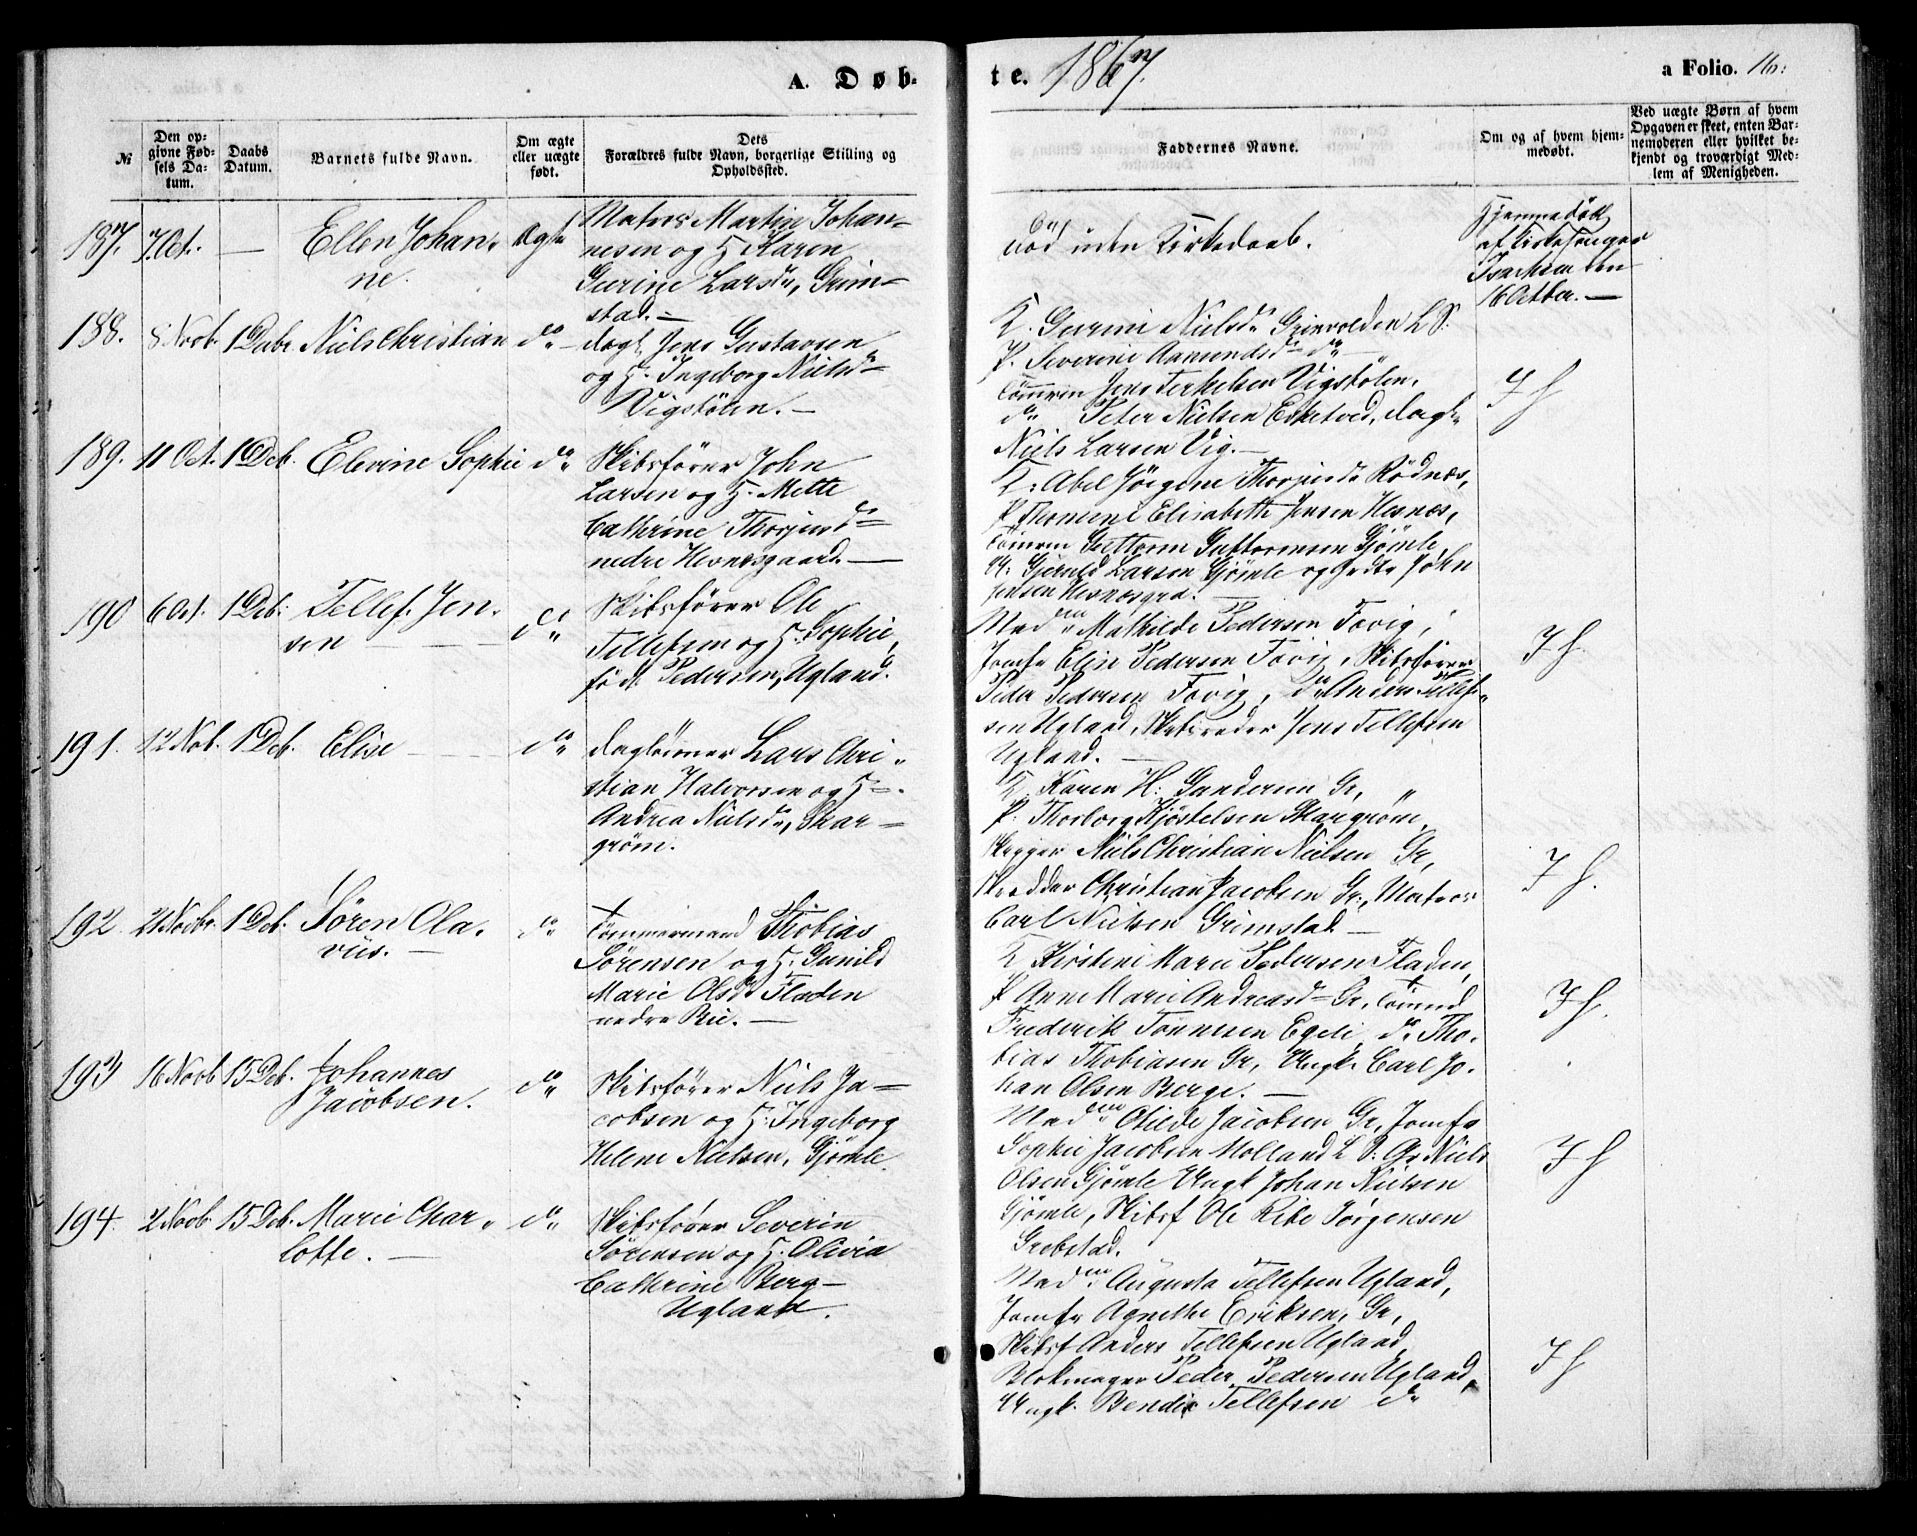 A. Døb-
te. 1867.
a Folio. 16:
№
Den op-
givne Fød-
sels Da-
tum.
Daabs
Datum.
Barnets fulde Navn.
Om ægte
eller uægte
født.
Dets
Forældres fulde Navn, borgerlige Stilling og
Opholdssted.
Faddernes Navne.
Om og af hvem hjem-
medøbt.
Ved uægte Børn af hvem
Opgaven er skeet, enten Bar-
nemoderen eller hvilket be-
kjendt og troværdigt Med-
lem af Menigheden.
187. 7 Oct. — Ellen Johan-
ne.
Ægte
Matros Martin Johan-
nesen og H. Karen
Gurine Larsdr, Grim-
stad. —
død uden Kirkedaab.
Hjemmedøbt
af Kirkesanger
den
16 Octbr. —
188. 8 Novb. 1 Debr. Niels Christian do
Dagl. Jens Gustavsen
og H. Ingeborg Nielsd
Vigstølen. —
K. Gurine Nielsdr L. S.
P. Severine Aamundsd do
Tømmerm Jens Terkelsen Vigstølen,
do Peter Nielsen Esketved, Dagl
Niels Larsen Vig. —
J H
189. 11 Oct. 1 Deb. Elevine Sophie do
Skibsfører John
Larsen og H. Mette
Cathrine Thorjusd
nedre Hevnesgaard. —
K: Abel Jørgine Thorjusdr Rødnes,
P. Thomine Elisabeth Jensen Hevnes,
Tømrm Guttorm Guttormsen Gjømle,
Larsen Gjømle og John
Jensen
190 6 Oct. 1 Deb: Tellef Jen-
sen
do
Skibsfører Ole
Tellefsen og H. Sophie,
født Pedersen, Ugland.
Madm Mathilde Pedersen Fevig,
Jomfr Elin Pedersen Fevig, Skibsfører
Peder Pedersen Fevig, do Anders Tellef-
sen Ugland, Skibsreder Jens Tellefsen
Ugland. —
J H.
191. 12 Nob. 1 Deb. Elise do
Dagleiner Lars Chri-
stian Halvorsen og H
Andrea Nielsdr, Skar-
grøm.
K. Karen H: Gundersen Gr,
P. Thorborg Kjøstelsen Skargrøm,
Niels Christian Nielsen Gr,
Skredder Christian Jacobsen Gr., Matros
Carl Nielsen Grimstad —
J H.
192 21 Novbr. 1 Deb. Søren Ola-
vus. —
do
Tømmermand Thobias
Sørensen og H. Gunild
Marie Olsd Fladen
nedre Rie. —
K Kirstine Marie Pedersen Fladen,
P Anne Marie Andreasd Gr, Tømmd
Frederik Tønnesen Egeli, do Tho-
bias Thobiasen Gr, Ungk. Carl Jo-
han Olsen Berge. —
J H.
193 16 Novb 15 Deb. Johannes
Jacobsen.
do
Skibsfører Niels Ja-
cobsen og H. Ingeborg
Helene Nielsen, Gjømle.
Madm Otilde Jacobsen Gr, Jomfr
Sophie Jacobsen Molland L S: Gr Niels
Olsen Gjømle Ungk Johan Nielsen
Gjømle, Skibsf Ole Ribe Jørgensen
Grebstad.
J H
194. 2 Novb. 15 Deb. Marie Char-
lotte. —
do
Skibsfører Severin
Sørensen og H. Olivia
Cathrine Berg
Ugland.
Madm Augusta Tellefsen Ugland,
Jomfr Agnethe Eriksen, Gr,
Skibsf Anders Tellefsen Ugland
Blokmager Peder Pedersen Ugland,
Ungk. Bendix Tellefsen do
J H